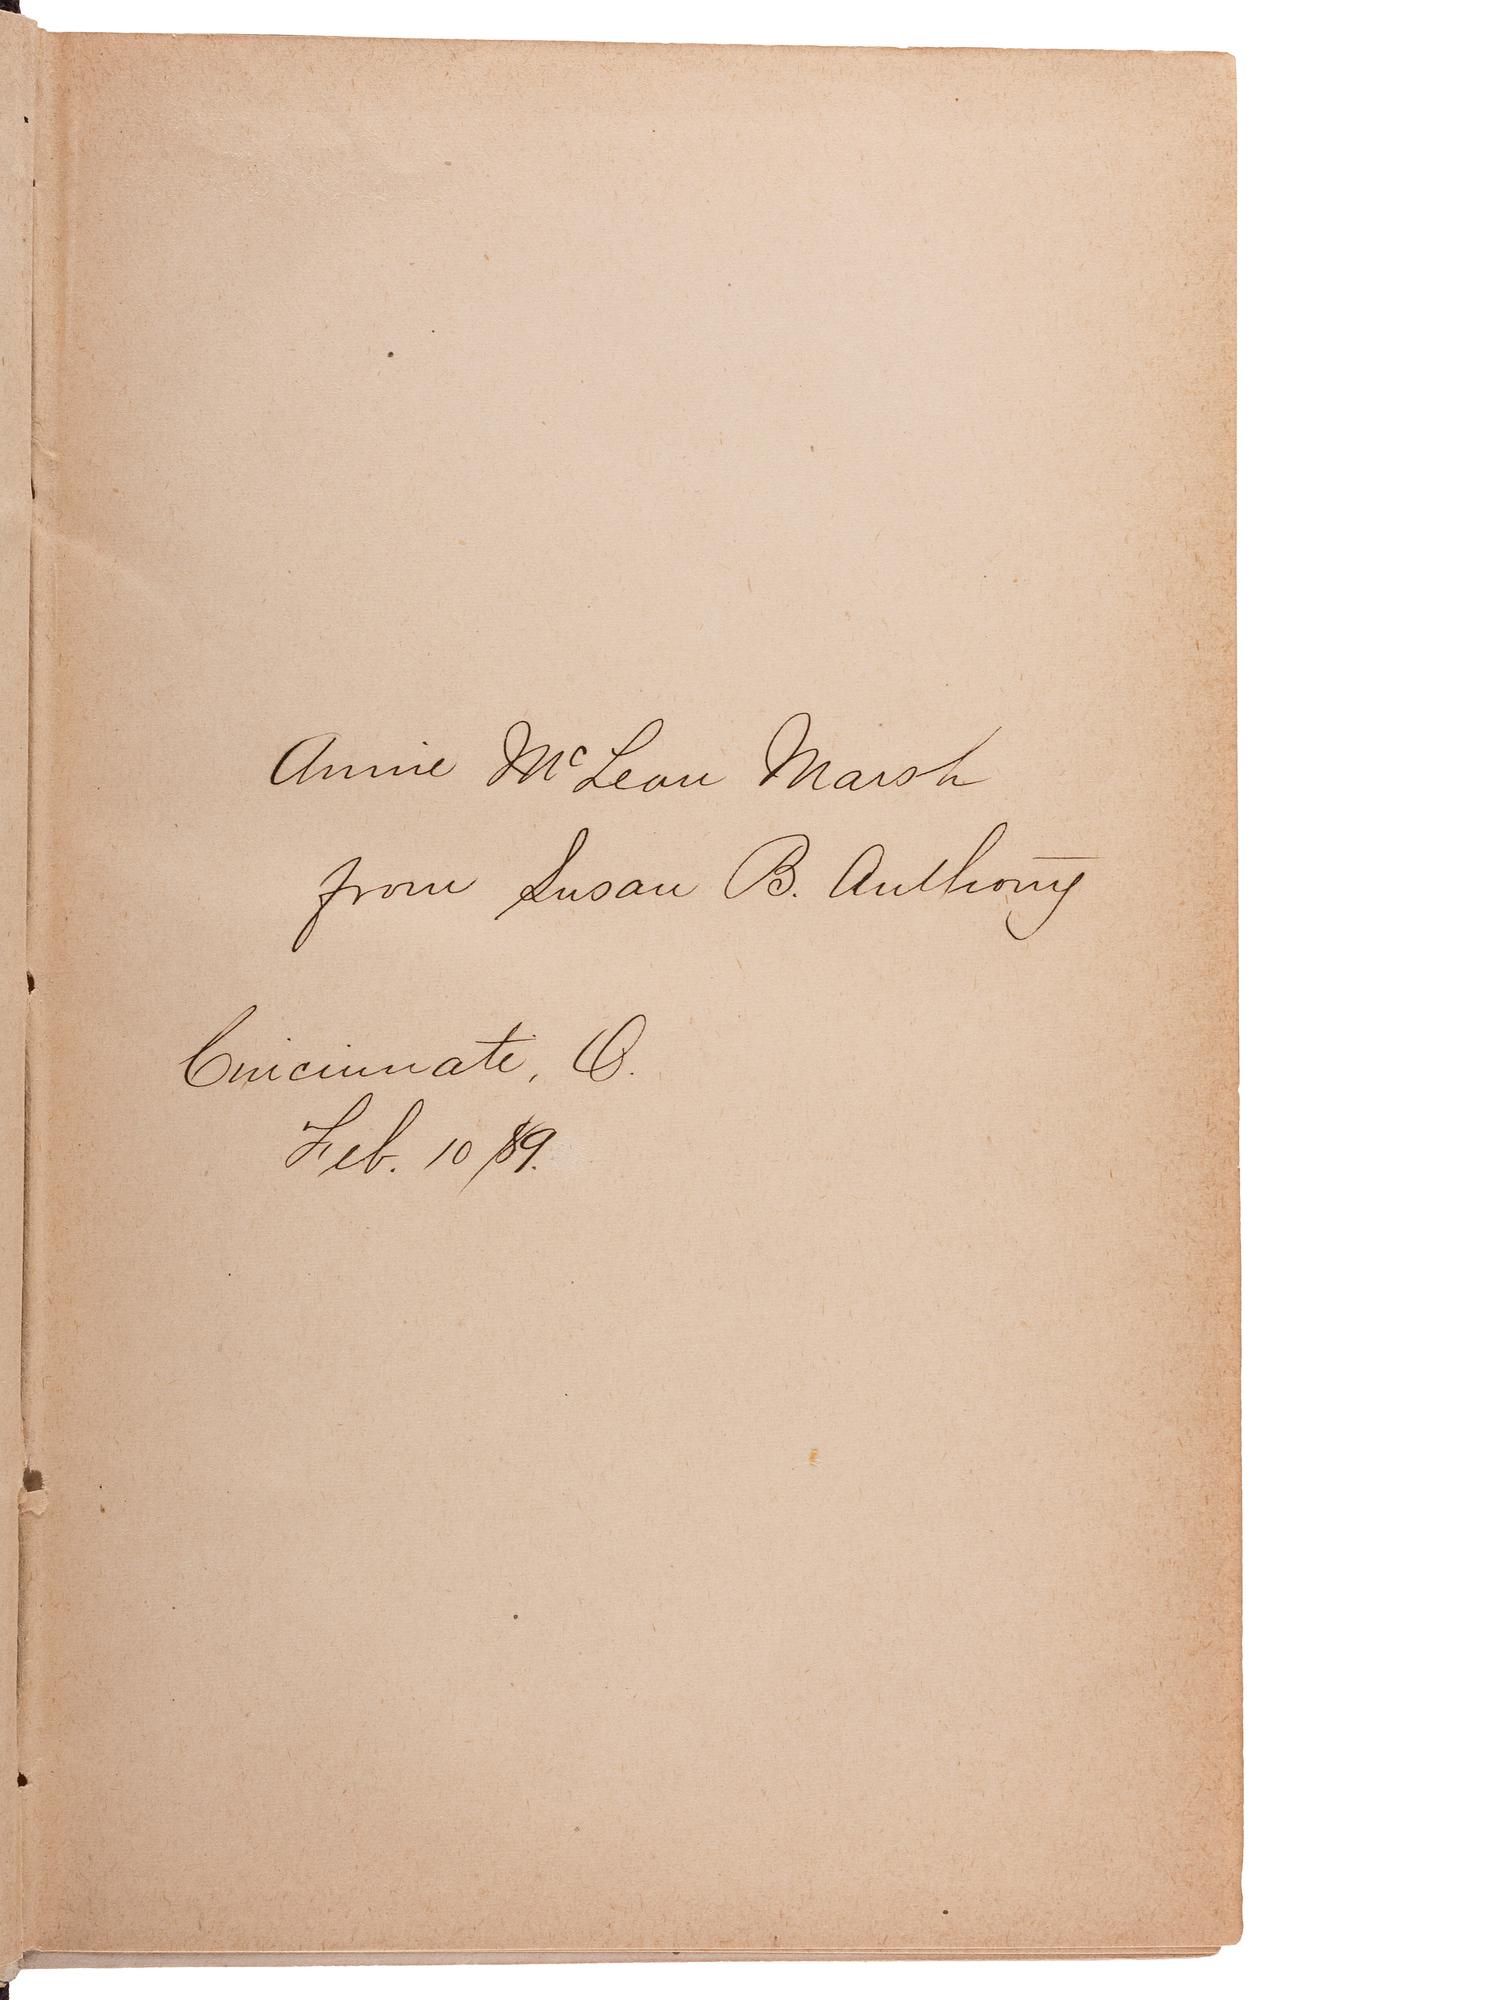 Annie McLean Marsh
from Susan B. Anthony
Cincinnati, O.
Feb. 10/89.